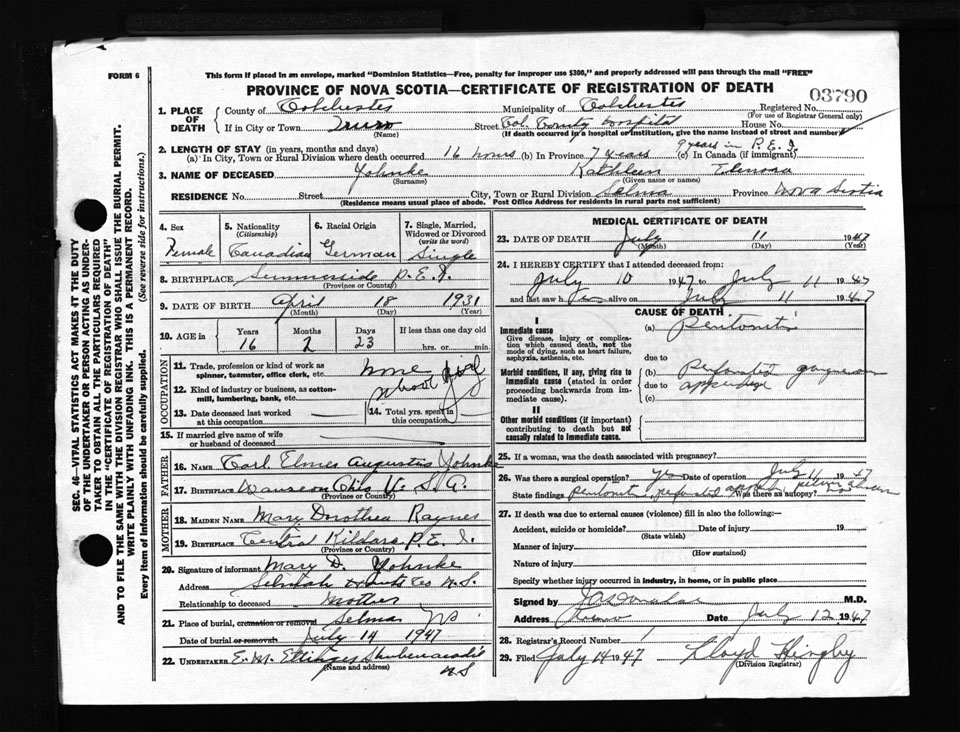 FORM 6
This form if placed in an envelope, marked "Dominion Statistics—Free, penalty for improper use $300," and properly addressed will pass through the mail "FREE"
PROVINCE OF NOVA SCOTIA—CERTIFICATE OF REGISTRATION OF DEATH
03790
1. PLACE OF DEATH
County of Colchester Municipality of Colchester Registered No.
(For use of Registrar General only)
If in City or Town Truro Street Col. County Hospital House No.
(Name) (If death occurred in a hospital or institution, give the name instead of street and number)
2. LENGTH OF STAY (in years, months and days)
9 years in P.E.I.
(a) In City, Town or Rural Division where death occurred 16 hours (b) In Province 7 years (c) In Canada (if immigrant)
3. NAME OF DECEASED Yohnke Kathleen
(Surname) (Given name or names)
RESIDENCE No. Street City, Town or Rural Division Selma Province Nova Scotia
(Residence means usual place of abode. Post Office Address for residents in rural parts not sufficient)
4. Sex
Female
5. Nationality
(Citizenship)
Canadian
6. Racial Origin
German
7. Single, Married, Widowed or Divorced
(write the word)
Single
8. BIRTHPLACE Summerside P.E.I.
(Province or Country)
9. DATE OF BIRTH April 18 1931
(Month) (Day) (Year)
10. AGE in
Years Months Days If less than one day old
16 2 23 hrs. or min.
OCCUPATION
11. Trade, profession or kind of work as spinner, teamster, office clerk, etc. none
12. Kind of industry or business, as cotton-mill, lumbering, bank, etc. School Girl
13. Date deceased last worked at this occupation
14. Total yrs. spent in this occupation
15. If married give name of wife or husband of deceased
FATHER
16. NAME Carl Elmer Augustus Yohnke
17. BIRTHPLACE Wauseon Ohio U.S.A.
(Province or Country)
MOTHER
18. MAIDEN NAME Mary Dorothea Raynes
19. BIRTHPLACE Central Kildare P.E.I.
(Province or Country)
20. Signature of informant Mary D. Yohnke
Address Selmah Hants Co N.S.
Relationship to deceased Mother
21. Place of burial, cremation or removal Selma NS
Date of burial or removal July 14 1947
22. UNDERTAKER E. M. Ettinger Shubenacadie
(Name and address)
NS
MEDICAL CERTIFICATE OF DEATH
23. DATE OF DEATH July 11 1947
(Month) (Day) (Year)
24. I HEREBY CERTIFY that I attended deceased from:
July 10 1947 to July 11 1947
and last saw h er alive on July 11 1947
CAUSE OF DEATH
I
Immediate cause
Give disease, injury or complication which caused death, not the mode of dying, such as heart failure, asphyxia, asthenia, etc.
(a) Peritonitis
due to
Morbid conditions, if any, giving rise to immediate cause (stated in order proceeding backwards from immediate cause).
(b) Perforated gangrenous
due to appendix
(c)
II
Other morbid conditions (if important) contributing to death but not causally related to immediate cause.
25. If a woman, was the death associated with pregnancy?
26. Was there a surgical operation? yes Date of operation July 11 1947
State findings peritonitis, perforated appendix pelvic abscess Was there an autopsy? no
27. If death was due to external causes (violence) fill in also the following:—
Accident, suicide or homicide? Date of injury 19
(State which)
Manner of injury
(How sustained)
Nature of injury
Specify whether injury occurred in industry, in home, or in public place
Signed by M.D.
Address Truro Date July 12 1947
28. Registrar's Record Number 1
29. Filed July 14 1947 Lloyd
(Division Registrar)
SEC. 46—VITAL STATISTICS ACT MAKES IT THE DUTY
OF THE UNDERTAKER OR PERSON ACTING AS UNDER-
TAKER TO OBTAIN ALL THE PARTICULARS REQUIRED
IN THE "CERTIFICATE OF REGISTRATION OF DEATH"
AND TO FILE THE SAME WITH THE DIVISION REGISTRAR WHO SHALL ISSUE THE BURIAL PERMIT.
WRITE PLAINLY WITH UNFADING INK. THIS IS A PERMANENT RECORD.
Every item of information should be carefully supplied. (See reverse side for instructions.)